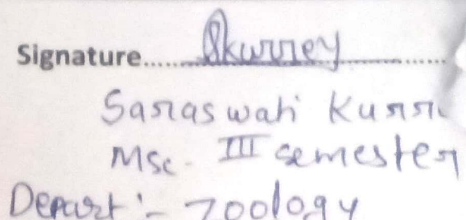 Signature.....Skurrey.....
Saraswati Kurr
Msc. III semester
Depart :- Zoology